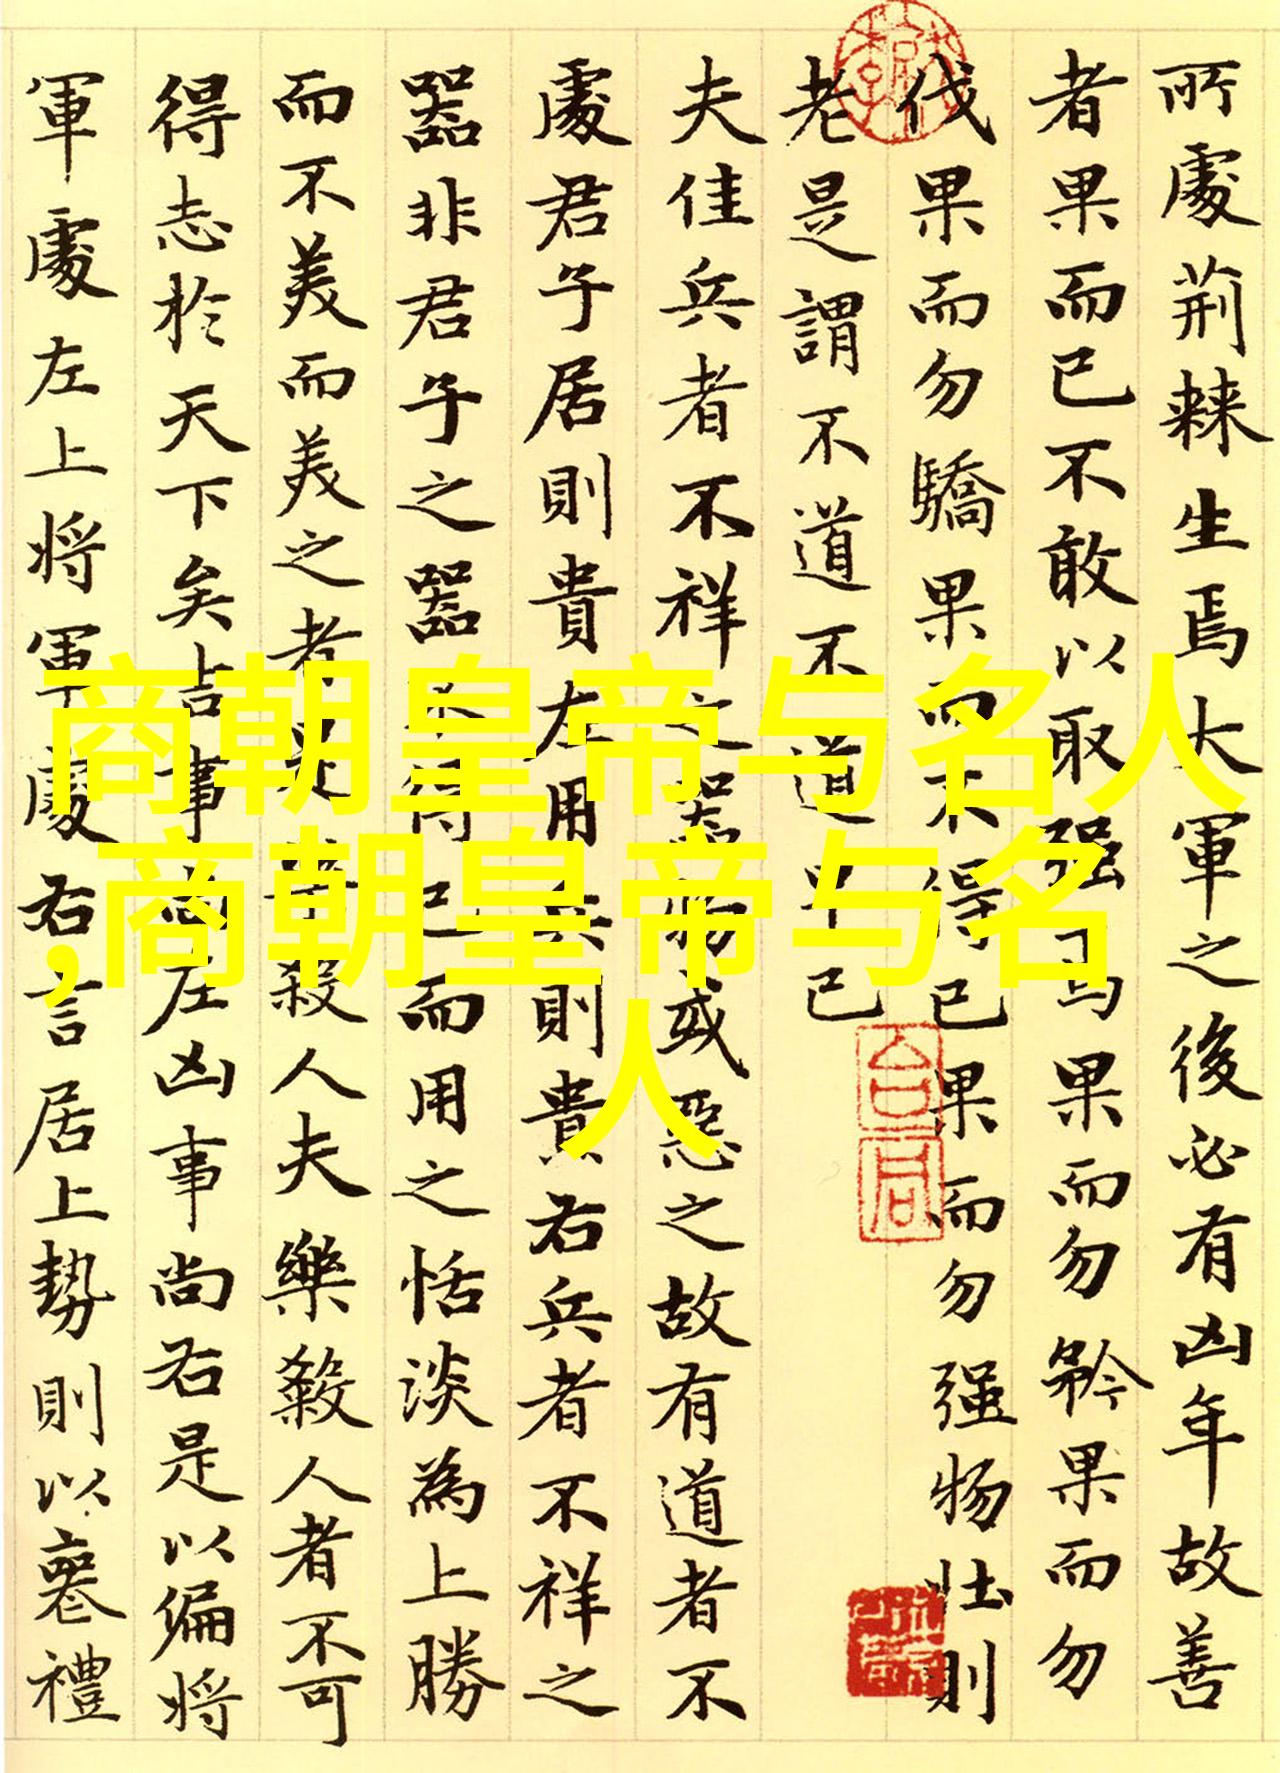 所處荊棘生焉大軍之後必有凶年故善
者果而已不敢以取强焉果而勿矜果而勿
伐果而勿驕果而不得已果而勿强物壯則
老是謂不道不道早已
夫佳兵者不祥之器物或惡之故有道者不
處君子居則貴左用兵則貴右兵者不祥之
器非君子之器不得已而用之恬淡為上勝
而不美而美之者是樂殺人夫樂殺人者不可
得志於天下矣吉事尚左凶事尚右是以偏將
軍處左上將軍處右言居上勢則以喪禮
商朝皇帝与名人
,商朝皇帝与名
人